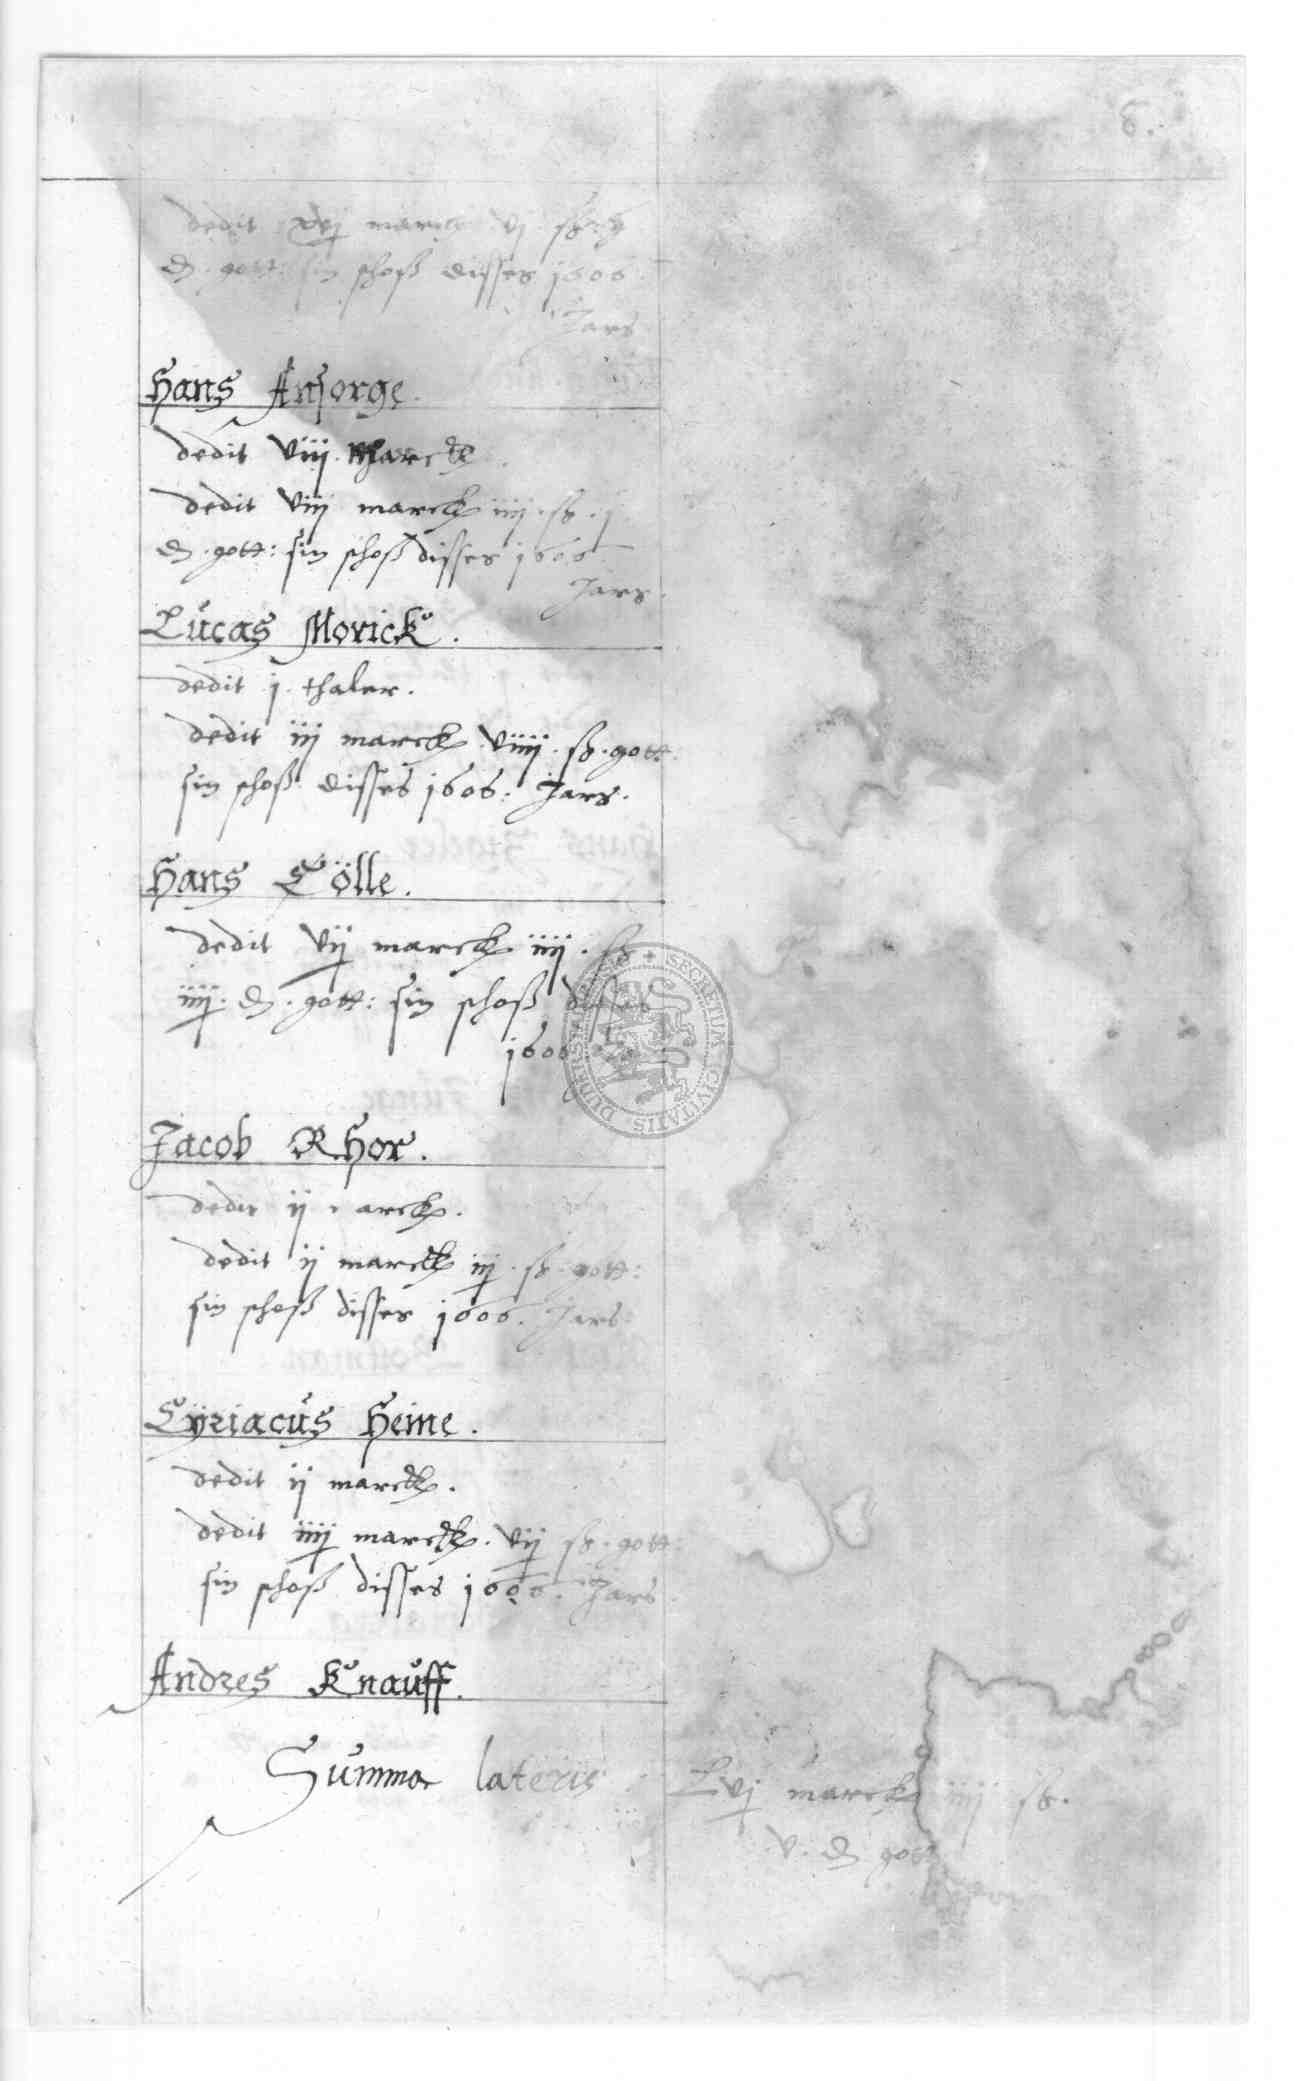 6.
dedit xvj marck vj ß. ij
d. gott: sin schoß disses 1606
Jars
Hans Ansorge.
dedit viij. marck
dedit viij marck iiij. ß. j
d. gott: sin schoß disses 1606
Jars.
Lucas Morick.
dedit j. thaler.
dedit iij marck. viiij. ß. gott:
sin schoß disses 1606. Jars.
Hans Cölle.
dedit vij marck iiij. ß
iiij. d. gott: sin schoß disses
1606
SECRETUM CIVITATIS
Jacob Rhor.
dedit ij marck.
dedit ij marck iij. ß. gott:
sin schoß disses 1606. Jars.
Cÿriacus Heine.
dedit ij marck.
dedit iiij marck. vij ß. gott:
sin schoß disses 1606. Jars
Andres Knauff.
Summa lateris Lvj marck iiij ß.
v. d gott